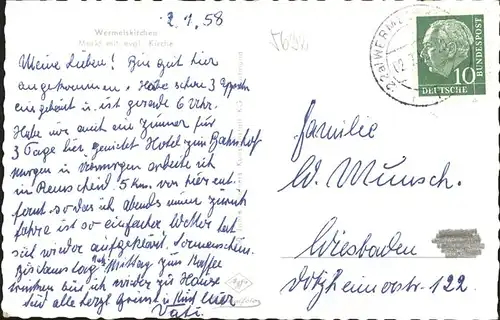 2.1.58
Wermelskirchen
Markt mit evgl. Kirche
Meine Lieben! Bin gut hier
angekommen, habe schon 3
eingekauft u. ist gerade 6 Uhr.
Habe mir auch ein Zimmer für
3 Tage hier gemietet Hotel zum Bahnhof
morgen u. übermorgen arbeite ich
in Remscheid. 5 Km. von hier ent-
fernt. so das ich abends immer zurück
fahre ist so einfacher. Wetter hat
sich wieder aufgeklärt, Sonnenschein.
Bis dann Mittag zum Kaffee
trinken bin ich wieder zu Hause
Für alle herzl Grüsse u Kuß Euer
Vati.
(22a) WERMEL
10
DEUTSCHE
BUNDESPOST
Familie
W. Wunsch.
Wiesbaden
Dotzheimerstr. 122.
Agfa